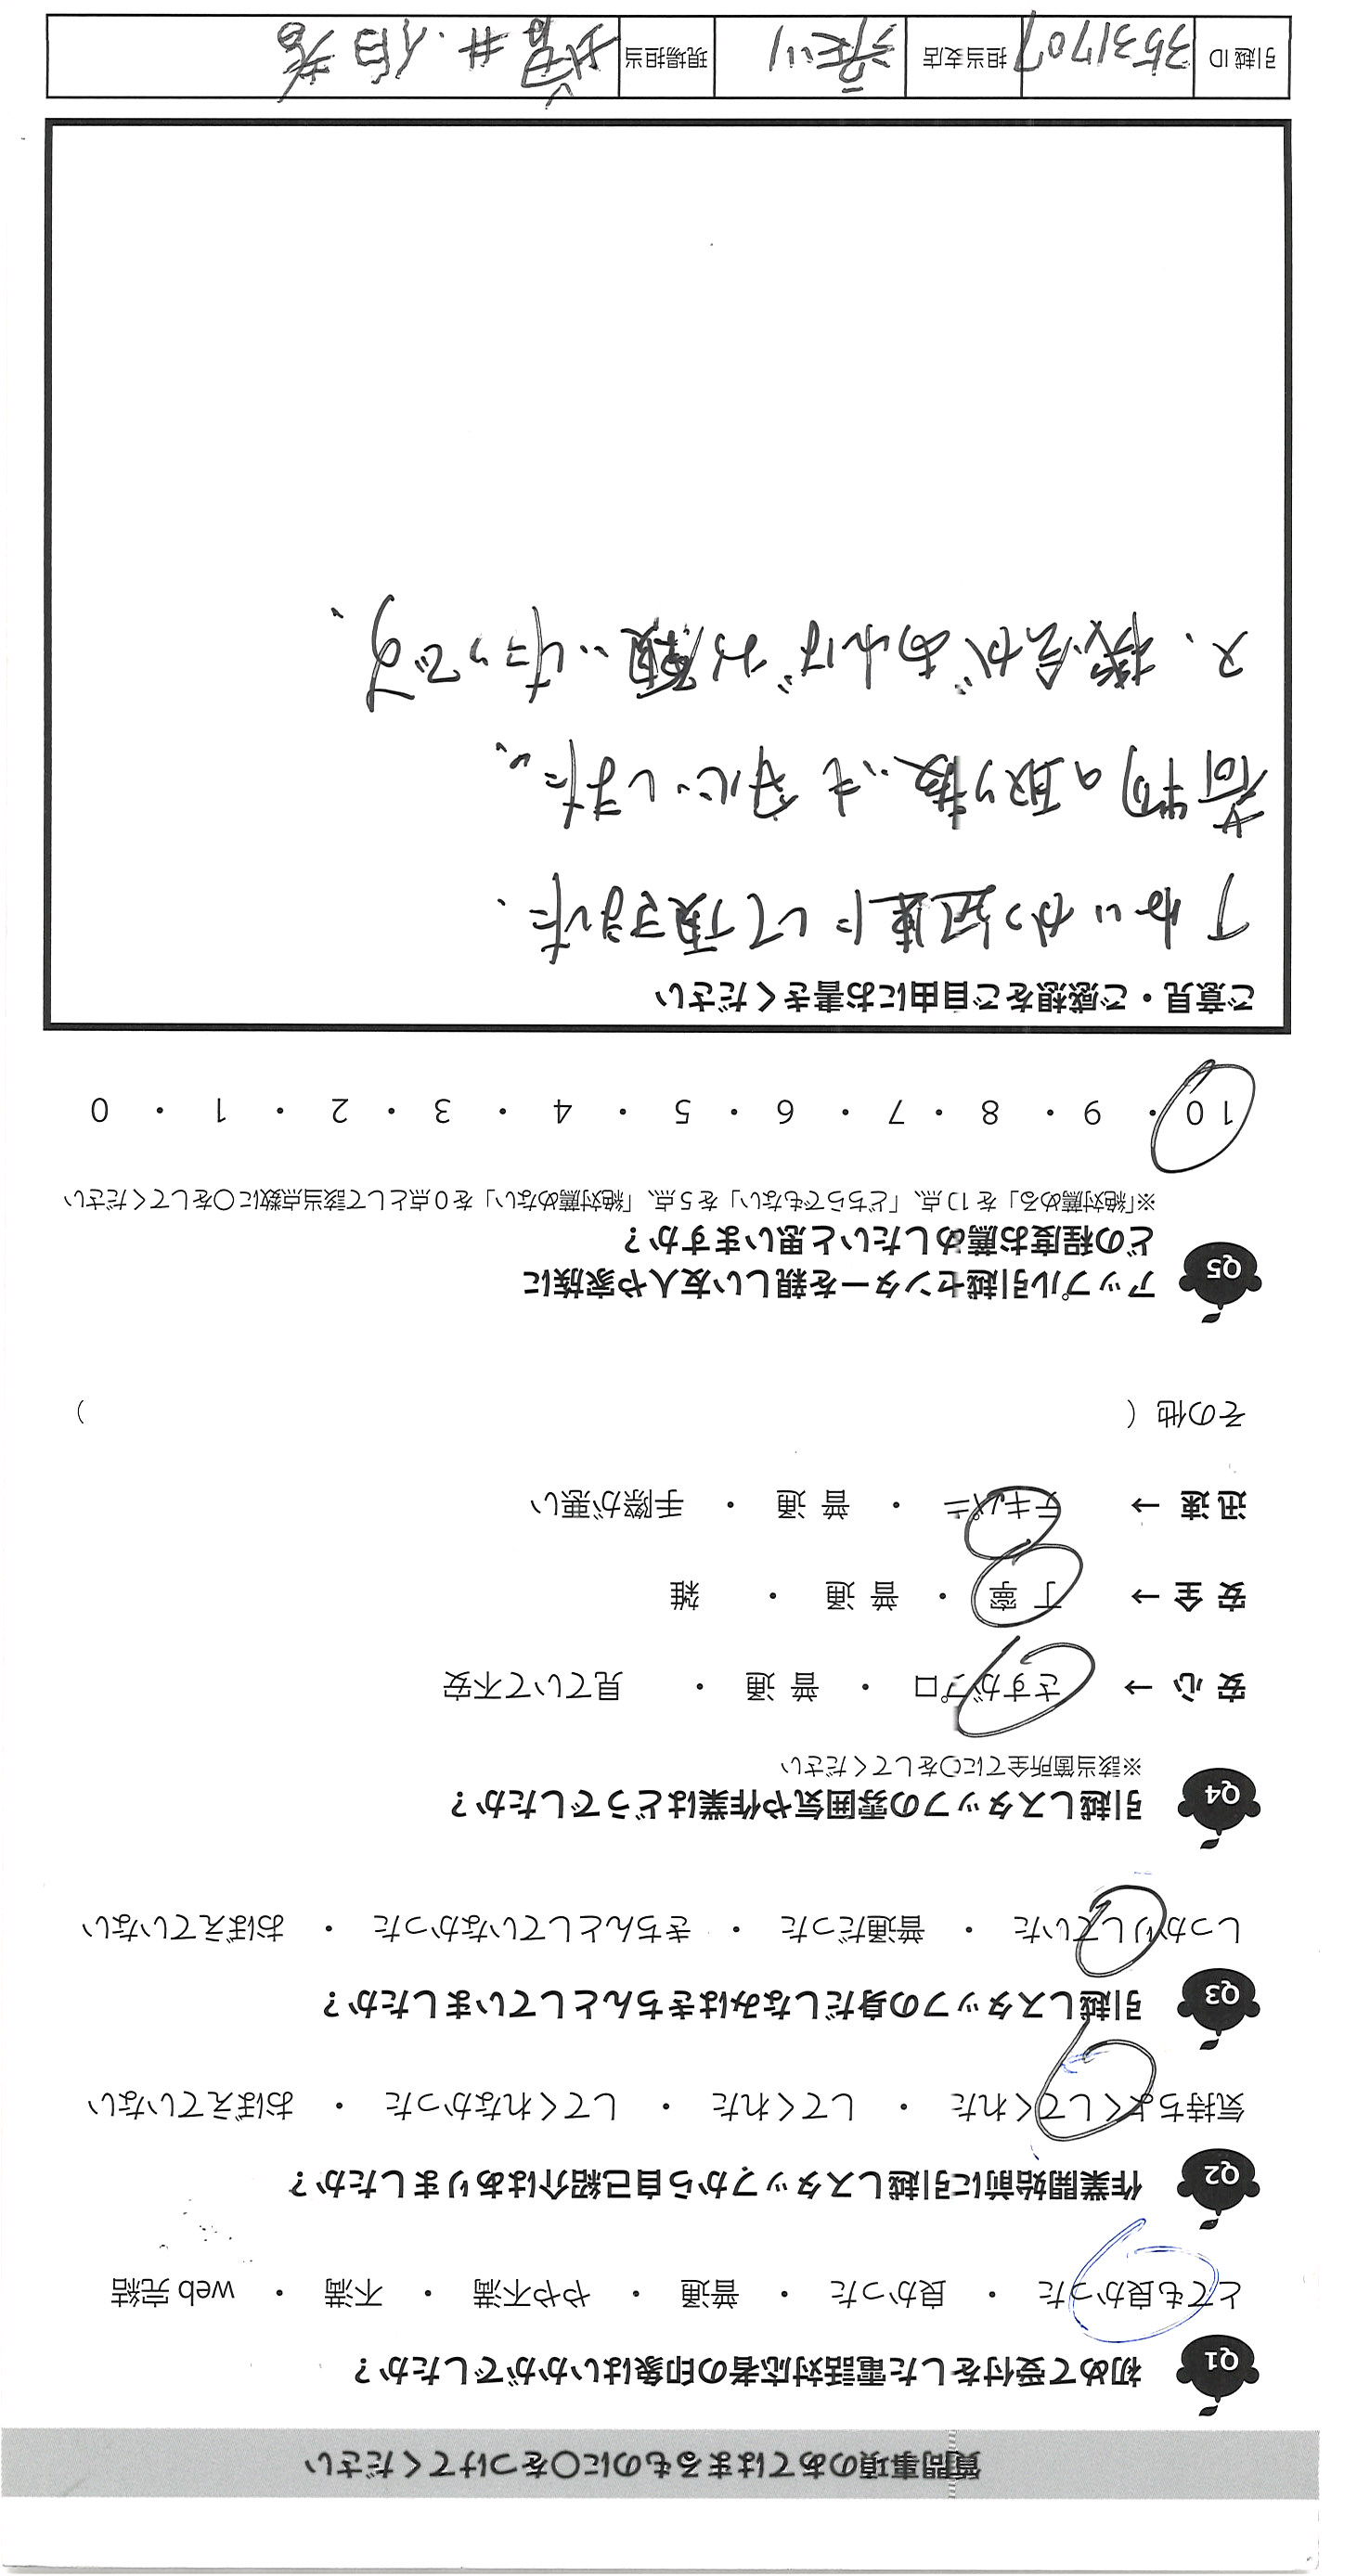 質問事項のあてはまるものに○をつけてください
Q1 初めて受付をした電話対応者の印象はいかがでしたか？
とても良かった ・ 良かった ・ 普通 ・ やや不満 ・ 不満 ・ web 完結
Q2 作業開始前に引越しスタッフから自己紹介はありましたか？
気持ちよくしてくれた ・ してくれた ・ してくれなかった ・ おぼえていない
Q3 引越しスタッフの身だしなみはきちんとしていましたか？
しっかりしていた ・ 普通だった ・ きちんとしていなかった ・ おぼえていない
Q4 引越しスタッフの雰囲気や作業はどうでしたか？
※該当箇所全てに○をしてください
安心 → さすがプロ ・ 普通 ・ 見ていて不安
安全 → 丁寧 ・ 普通 ・ 雑
迅速 → テキパキ ・ 普通 ・ 手際が悪い
その他（ ）
Q5 アップル引越センターを親しい友人や家族に
どの程度お薦めしたいと思いますか？
※「絶対薦める」を10点、「どちらでもない」を5点、「絶対薦めない」を0点として該当点数に○をしてください
10 ・ 9 ・ 8 ・ 7 ・ 6 ・ 5 ・ 4 ・ 3 ・ 2 ・ 1 ・ 0
ご意見・ご感想をご自由にお書きください
丁ねいかつ迅速にして頂きました.
荷物の取り扱いも安心しました。
又、機会があればお願いしたいです、
引越ID 3531707 担当支店 現場担当